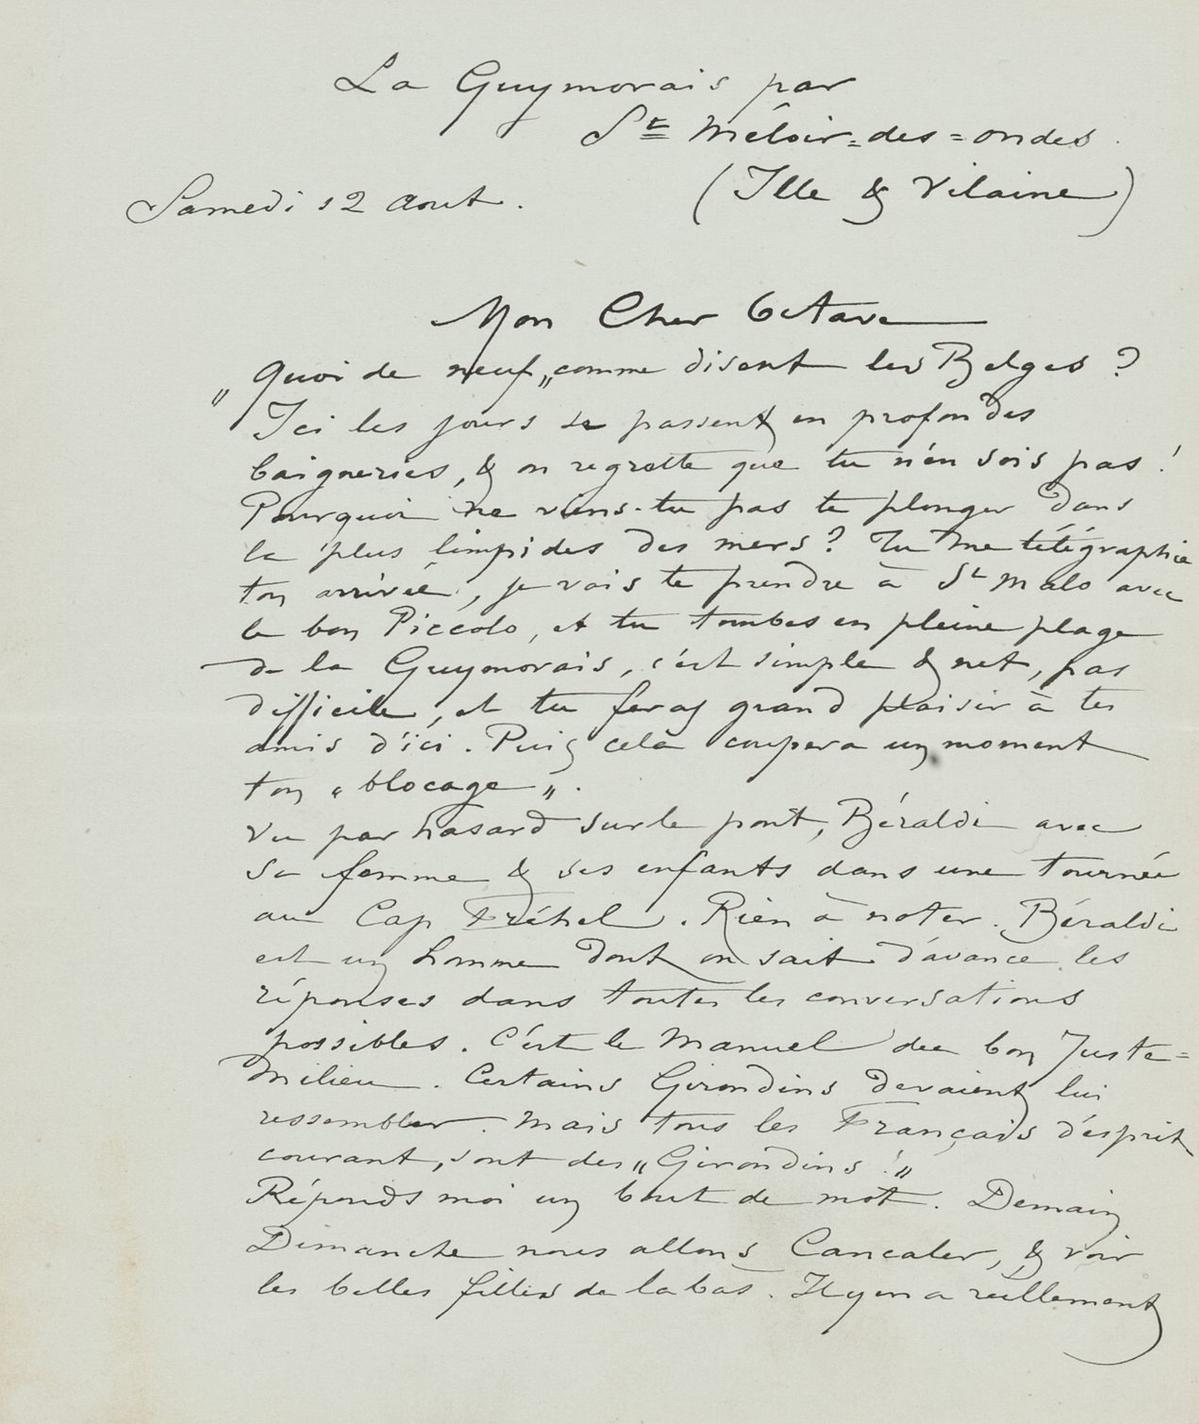 La Guymorais par
St Méloir=des=ondes
(Ille & Vilaine)
Samedi 12 Aout.
Mon Cher Octave
„Quoi de neuf„ comme disent les Belges ?
Ici les jours se passent en profondes
baigneries, & on regrette que tu n'en sois pas !
Pourquoi ne viens-tu pas te plonger dans
la plus limpides des mers ? Tu me télégraphie
ton arrivée, je vais te prendre à St Malo avec
le bon Piccolo, et tu tombes en pleine plage
de la Guymorais, c'est simple & net, pas
difficile, et tu feras grand plaisir à tes
amis d'ici. Puis cela coupera un moment
ton « blocage „.
Vu par hasard sur le pont, Béraldi avec
sa femme & ses enfants dans une tournée
au Cap Fréhel. Rien à noter. Béraldi
est un homme dont on sait d'avance les
réponses dans toutes les conversations
possibles. C'est le Manuel du bon Juste=
Milieu. Certains Girondins devaient lui
ressembler. Mais tous les Français d'esprit
courant, sont des „Girondins !„
Réponds moi un bout de mot. Demain
Dimanche nous allons Cancaler, & voir
les belles filles de là bas. Il y en a réellement